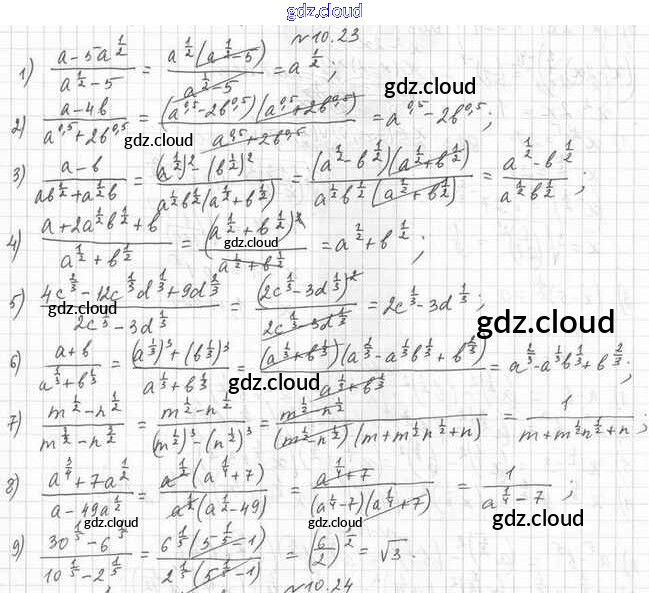 gdz.cloud
№10.23
1) (a-5a^(1/2))/(a^(1/2)-5) = (a^(1/2)(a^(1/2)-5))/(a^(1/2)-5) = a^(1/2);
gdz.cloud
2) (a-4b)/(a^(0,5)+2b^(0,5)) = ((a^(0,5)-2b^(0,5))(a^(0,5)+2b^(0,5)))/(a^(0,5)+2b^(0,5)) = a^(0,5)-2b^(0,5);
gdz.cloud
gdz.cloud
3) (a-b)/(ab^(1/2)+a^(1/2)b) = ((a^(1/2))^2-(b^(1/2))^2)/(a^(1/2)b^(1/2)(a^(1/2)+b^(1/2))) = ((a^(1/2)-b^(1/2))(a^(1/2)+b^(1/2)))/(a^(1/2)b^(1/2)(a^(1/2)+b^(1/2))) = (a^(1/2)-b^(1/2))/(a^(1/2)b^(1/2));
4) (a+2a^(1/2)b^(1/2)+b)/(a^(1/2)+b^(1/2)) = (a^(1/2)+b^(1/2))^2/(a^(1/2)+b^(1/2)) = a^(1/2)+b^(1/2);
gdz.cloud
5) (4c^(2/3)-12c^(1/3)d^(1/3)+9d^(2/3))/(2c^(1/3)-3d^(1/3)) = (2c^(1/3)-3d^(1/3))^2/(2c^(1/3)-3d^(1/3)) = 2c^(1/3)-3d^(1/3);
gdz.cloud
gdz.cloud
gdz.cloud
6) (a+b)/(a^(1/3)+b^(1/3)) = ((a^(1/3))^3+(b^(1/3))^3)/(a^(1/3)+b^(1/3)) = ((a^(1/3)+b^(1/3))(a^(2/3)-a^(1/3)b^(1/3)+b^(2/3)))/(a^(1/3)+b^(1/3)) = a^(2/3)-a^(1/3)b^(1/3)+b^(2/3);
gdz.cloud
gdz.cloud
7) (m^(1/2)-n^(1/2))/(m^(3/2)-n^(3/2)) = (m^(1/2)-n^(1/2))/((m^(1/2))^3-(n^(1/2))^3) = (m^(1/2)-n^(1/2))/((m^(1/2)-n^(1/2))(m+m^(1/2)n^(1/2)+n)) = 1/(m+m^(1/2)n^(1/2)+n);
8) (a^(3/4)+7a^(1/2))/(a-49a^(1/2)) = (a^(1/2)(a^(1/4)+7))/(a^(1/2)(a^(1/2)-49)) = (a^(1/4)+7)/((a^(1/4)-7)(a^(1/4)+7)) = 1/(a^(1/4)-7);
gdz.cloud
gdz.cloud
gdz.cloud
9) (30^(1/5)-6^(1/5))/(10^(1/5)-2^(1/5)) = (6^(1/5)(5^(1/5)-1))/(2^(1/5)(5^(1/5)-1)) = (6/2)^(1/2) = √3.
№10.24